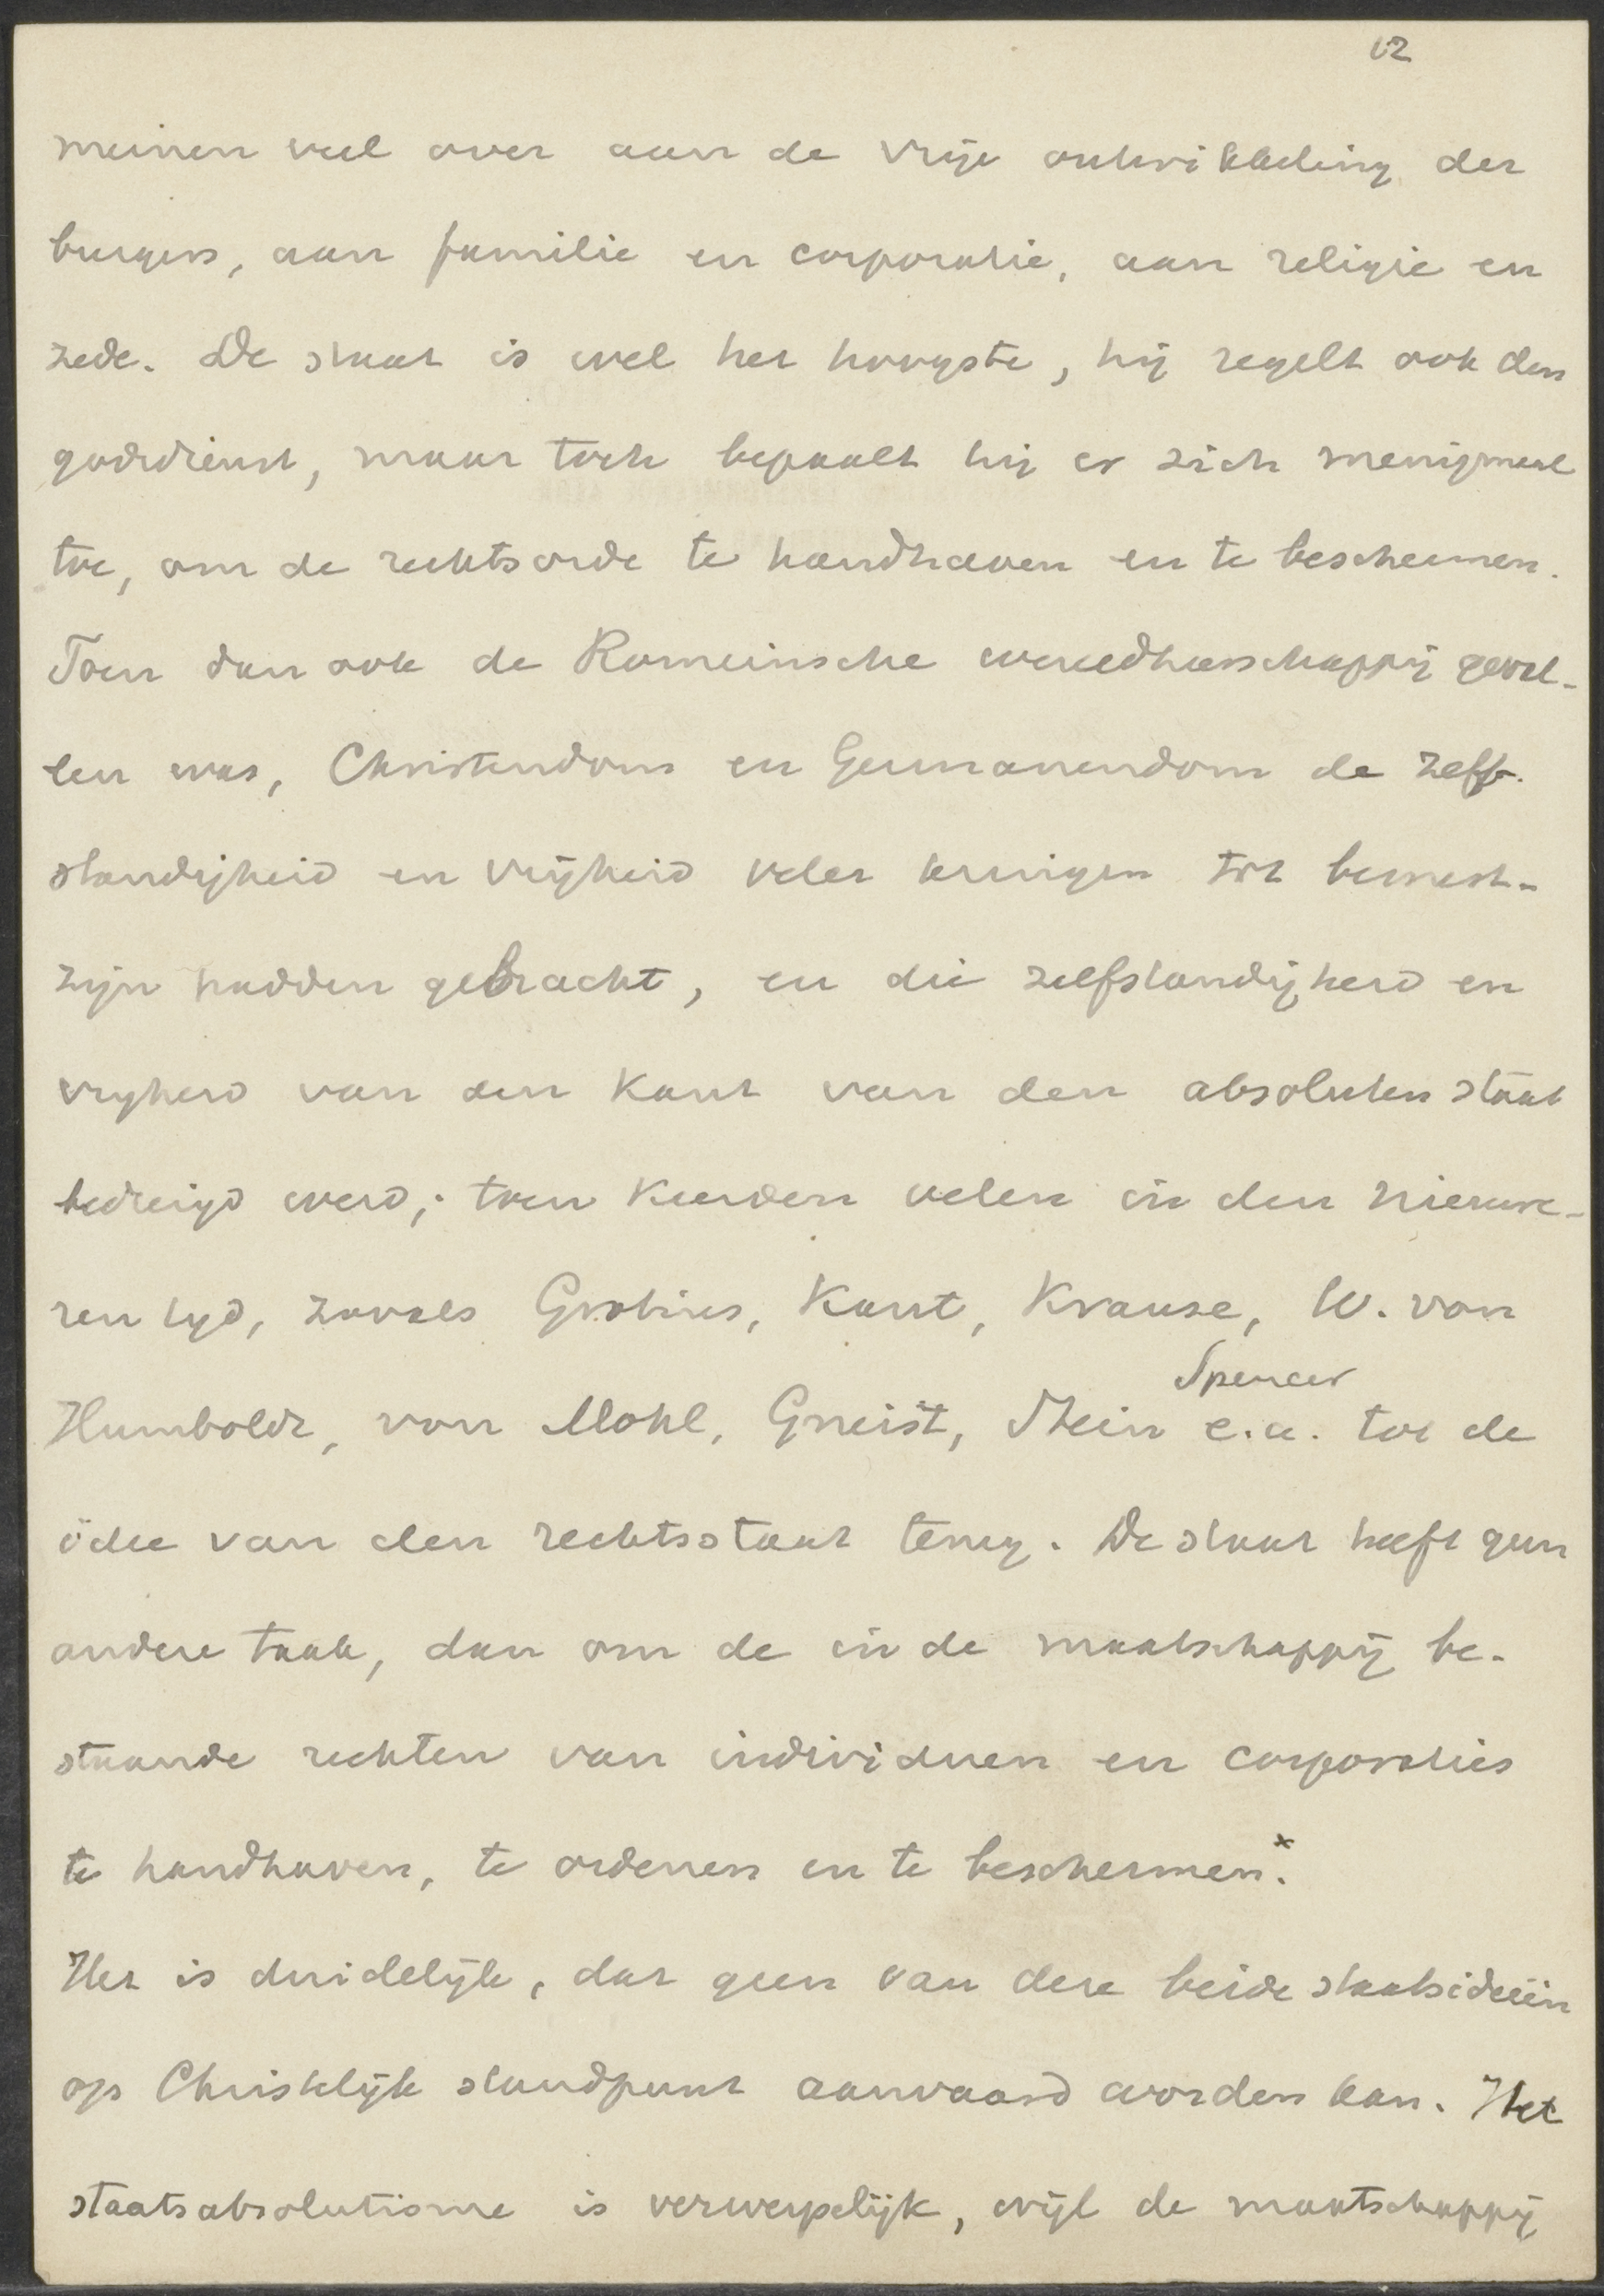 12
meinen veel over aan de vrije ontwikkeling der
burgers, aan familie en corporatie, aan religie en
zede. De staat is wel het hoogste, hij regelt ook den
godsdienst, maar toch bepaalt hij er zich menigmaal
toe, om de rechtsorde te handhaven en te beschermen.
Toen dan ook de Romeinsche wereldheerschappij geval-
len was, Christendom en Germanendom de zelf-
standigheid en vrijheid veler kringen tot bewust-
zijn hadden gebracht, en die zelfstandigheid en
vrijheid van den kant van den absoluten staat
bedreigd werd; toen keerden velen in den nieuwe-
ren tijd, zooals Grotius, Kant, Krause, W. von
Spencer
Humboldt, von Mohl, Gneist, Stein e.a. tot de
idee van den rechtsstaat terug. De staat heeft geen
andere taak, dan om de in de maatschappij be-
staande rechten van individuen en corporaties
te handhaven, te ordenen en te beschermen.×
Het is duidelijk, dat geen van deze beide staatsideeën
op Christelijk standpunt aanvaard worden kan. Het
staatsabsolutisme is verwerpelijk, wijl de maatschappij